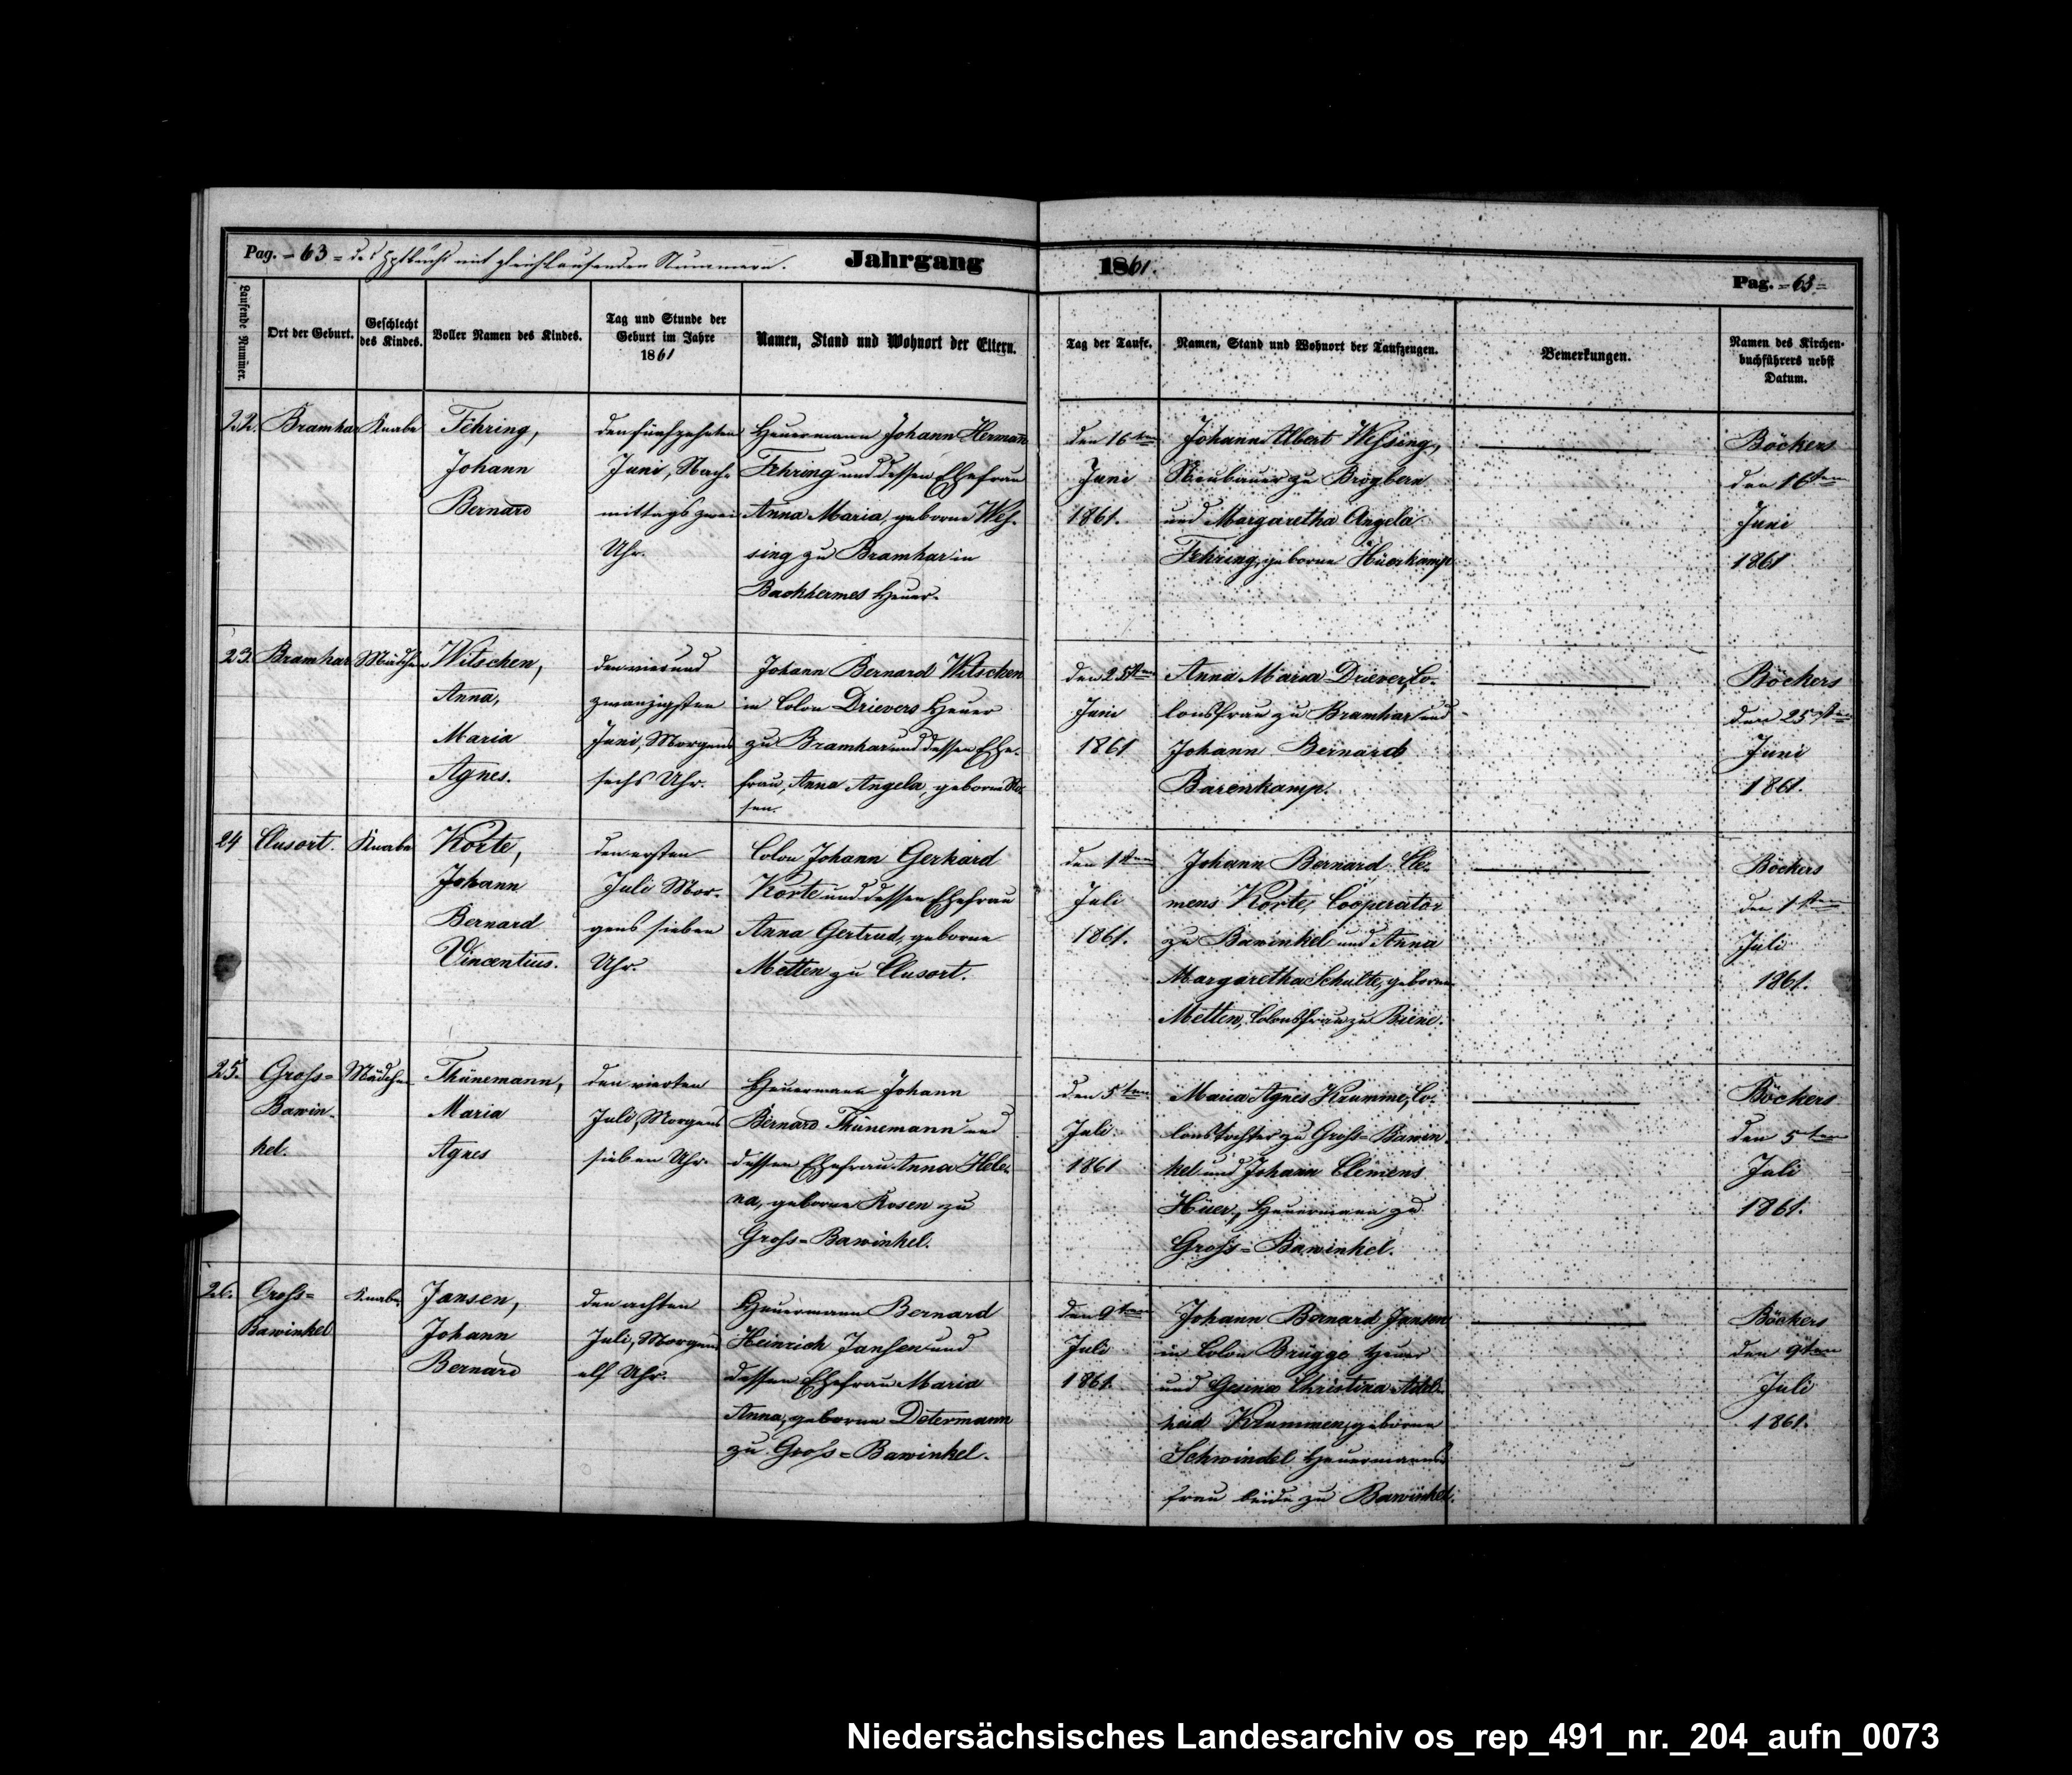 Pag. = 63 = des Hptbuchs mit gleichlaufenden Nummern.
Jahrgang 1861.
Pag. = 63 =
Laufende Nummer.
Ort der Geburt.
Geschlecht
des Kindes.
Voller Namen des Kindes.
Tag und Stunde der
Geburt im Jahre
1861
Namen, Stand und Wohnort der Eltern.
Tag der Taufe.
Namen, Stand und Wohnort der Taufzeugen.
Bemerkungen.
Namen des Kirchen-
buchführers nebst
Datum.
22.
Bramhar
Knabe
Fehring,
Johann
Bernard
den fünfzehnten
Juni, Nach-
mittags zwei
Uhr.
Heuermann Johann Herman
Fehring und dessen Ehefrau
Anna Maria, geborne Weß-
sing zu Bramhar in
Backhermes Heuer.
den 16ten
Juni
1861.
Johann Albert Weßsing,
Neubauer zu Brögbern
und Margaretha Angela
Fehring, geborne Hüerkamp
Böckers
den 16ten
Juni
1861
23.
Bramhar
Mädchen
Witschen,
Anna,
Maria
Agnes.
den vier und
zwanzigsten
Juni, Morgens
sechs Uhr.
Johann Bernard Witschen
in Colon Drievers Heuer
zu Bramhar und dessen Ehe-
frau, Anna Angela, geborne Ro-
sen.
den 25sten
Juni
1861
Anna Maria Driever, Co-
lonsfrau zu Bramhar und
Johann Bernard
Barenkamp.
Böckers
den 25sten
Juni
1861.
24
Clusort.
Knabe
Korte,
Johann
Bernard
Vincentius.
den ersten
Juli Mor-
gens sieben
Uhr.
Colon Johann Gerhard
Korte und dessen Ehefrau
Anna Gertrud, geborne
Metten zu Clusort.
den 1sten
Juli
1861.
Johann Bernard Cle-
mens Korte, Cooperator
zu Bawinkel und Anna
Margaretha Schulte, geborne
Metten, Colonsfrau zu Biene.
Böckers
den 1sten
Juli
1861.
25.
Groß=
Bawin-
kel.
Mädchen
Thünemann,
Maria
Agnes
den vierten
Juli, Morgens
sieben Uhr.
Heuermann Johann
Bernard Thünemann und
dessen Ehefrau Anna Hele-
na, geborne Rosen zu
Groß=Bawinkel.
den 5ten
Juli
1861
Maria Agnes Krumme, Co-
lonstochter zu Groß=Bawin-
kel und Johann Clemens
Hüer, Heuermann zu
Groß=Bawinkel.
Böckers
den 5ten
Juli
1861.
26.
Groß=
Bawinkel
Knabe.
Jansen,
Johann
Bernard
den achten
Juli, Morgens
elf Uhr.
Heuermann Bernard
Heinrich Janßen und
dessen Ehefrau Maria
Anna, geborne Determann
zu Groß=Bawinkel.
den 9ten
Juli
1861.
Johann Bernard Jansen
in Colon Brügge Heuer
und Gesina Christina Adel-
heid Krummen, geborne
Schwindel Heuermanns-
frau beide zu Bawinkel.
Böckers
den 9ten
Juli
1861.
Niedersächsisches Landesarchiv os_rep_491_nr._204_aufn_0073